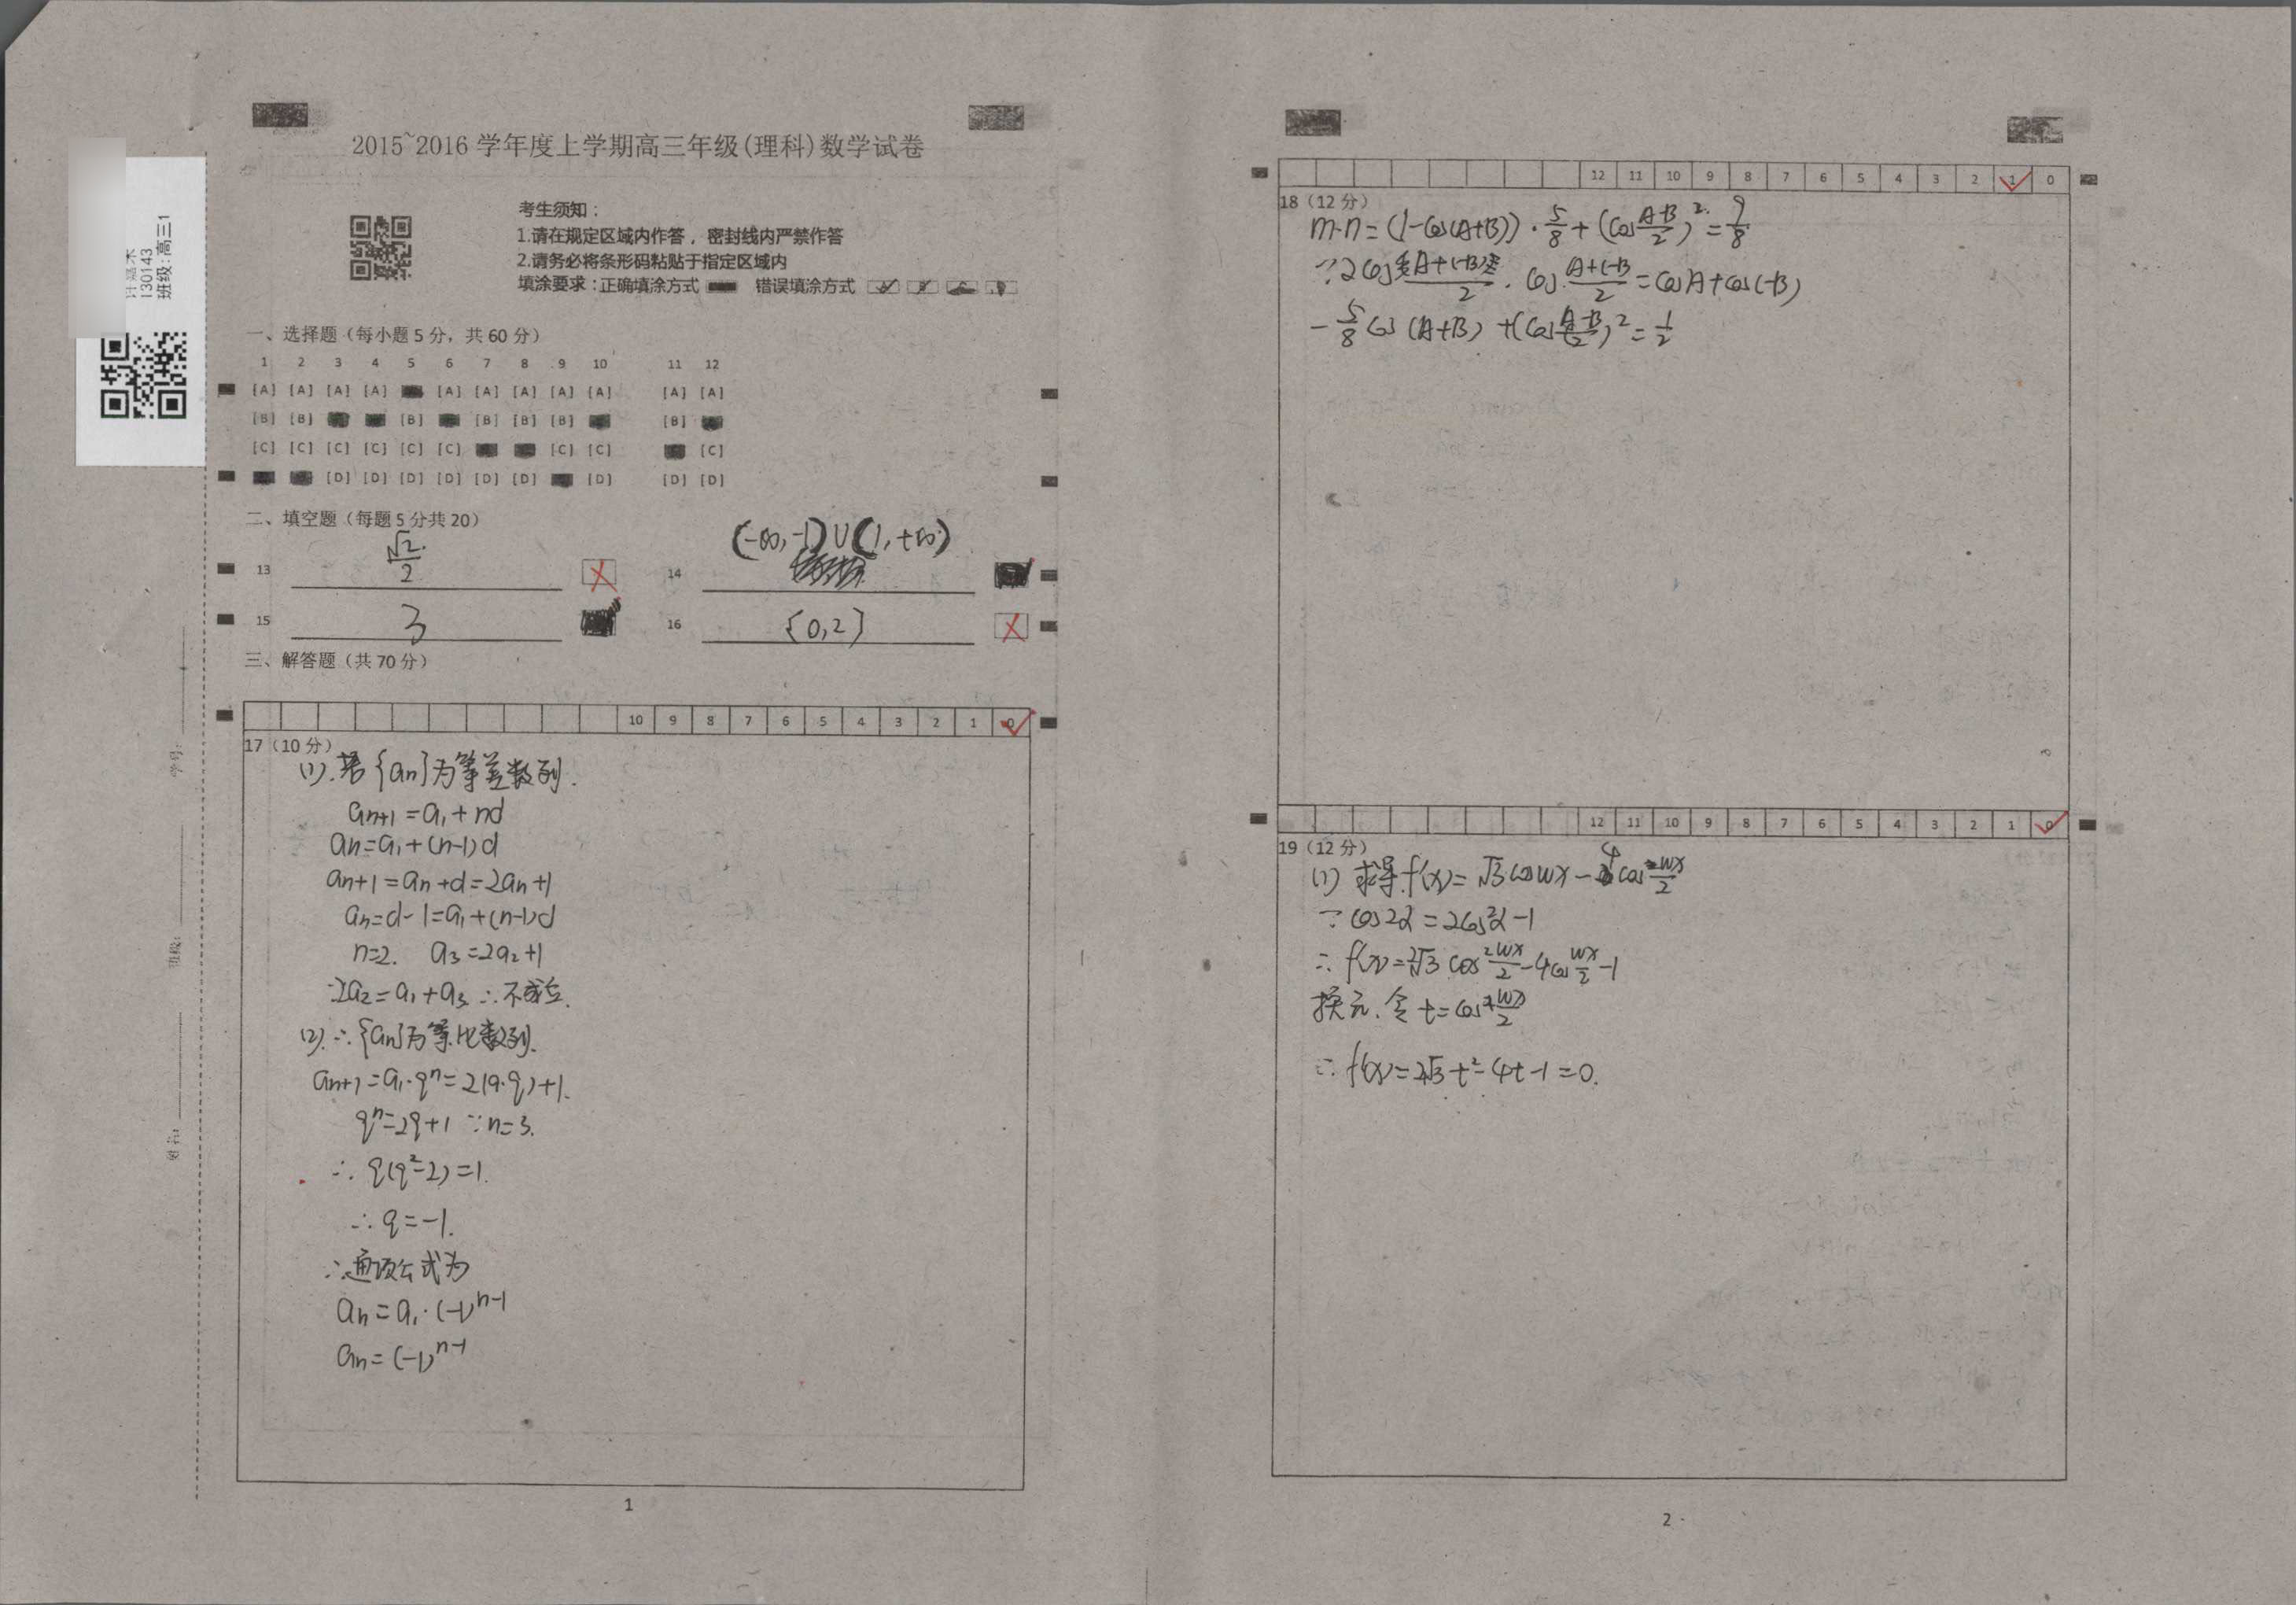 2015~2016 学年度上学期高三年级(理科)数学试卷
130143
班级:高三1
考生须知：
1.请在规定区域内作答，密封线内严禁作答
2.请务必将条形码粘贴于指定区域内
填涂要求：正确填涂方式 错误填涂方式
一、选择题（每小题5分，共60分）
1 2 3 4 5 6 7 8 9 10 11 12
[A] [A] [A] [A] [A] [A] [A] [A] [A] [A] [A]
[B] [B] [B] [B] [B] [B] [B]
[C] [C] [C] [C] [C] [C] [C] [C] [C]
[D] [D] [D] [D] [D] [D] [D] [D] [D]
二、填空题（每题5分共20）
13 √2/2 14 (-∞,-1)∪(1,+∞)
15 3 16 {0,2}
三、解答题（共70分）
10 9 8 7 6 5 4 3 2 1 0
17（10分）
(1).若{an}为等差数列.
an+1=a1+nd
an=a1+(n-1)d
an+1=an+d=2an+1
an=d-1=a1+(n-1)d
n=2. a3=2a2+1
∵2a2=a1+a3 ∴不成立.
(2).∴{an}为等比数列.
an+1=a1·qⁿ=2(a·q)+1.
qⁿ=2q+1 ∵n=3.
∴q(q²-2)=1.
∴q=-1.
∴通项公式为
an=a1·(-1)ⁿ⁻¹
an=(-1)ⁿ⁻¹
1
12 11 10 9 8 7 6 5 4 3 2 1 0
18（12分）
m·n=(1-cos(A+B))·5/8+(cos(A-B)/2)²=9/8
∵2cos(A+(-B))/2·cos(A+(-B))/2=cosA+cos(-B)
-5/8cos(A+B)+(cos(A-B)/2)²=1/2
12 11 10 9 8 7 6 5 4 3 2 1 0
19（12分）
(1) 求得f(x)=√3coswx-4cos wx/2
∵cos2α=2cos²α-1
∴f(x)=2√3cos² wx/2-4cos wx/2-1
换元.令t=cos wx/2
∴f(x)=2√3t²-4t-1=0.
2
学号:
班级:
姓名: